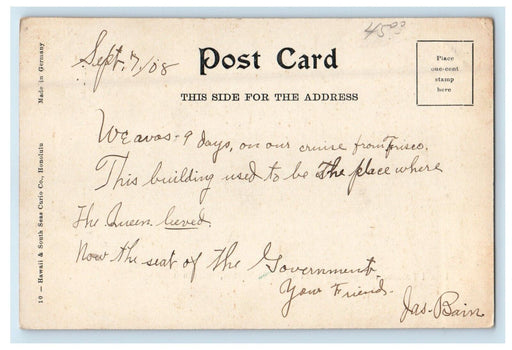 Sept. 7/08
4500
Post Card
THIS SIDE FOR THE ADDRESS
Place
one-cent
stamp
here
Made in Germany
10 — Hawaii & South Seas Curio Co., Honolulu
We avos - 9 days, on our cruise from Frisco.
This building used to be The place where
the Queen lieved.
Now the seat of the Government.
Your Friend.
Jas. Bain